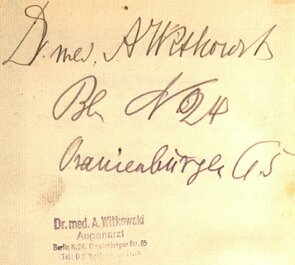 Dr. med. A Witkowski
Bln N 24
Oranienburger
Dr. med. A. Witkowski
Augenarzt
Berlin N.24, Oranienburger Str.